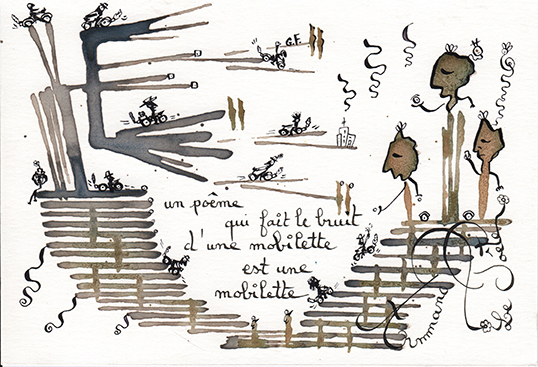 G.F.
un poême
qui fait le bruit
d'une mobilette
est une
mobilette
Armand
Le